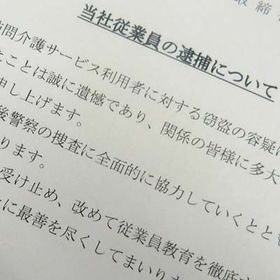 取締
当社従業員の逮捕について
訪問介護サービス利用者に対する窃盗の容疑
ことは誠に遺憾であり、関係の皆様に多大
申し上げます。
後警察の捜査に全面的に協力していくとと
ります。
受け止め、改めて従業員教育を徹底
に最善を尽くしてまいりま